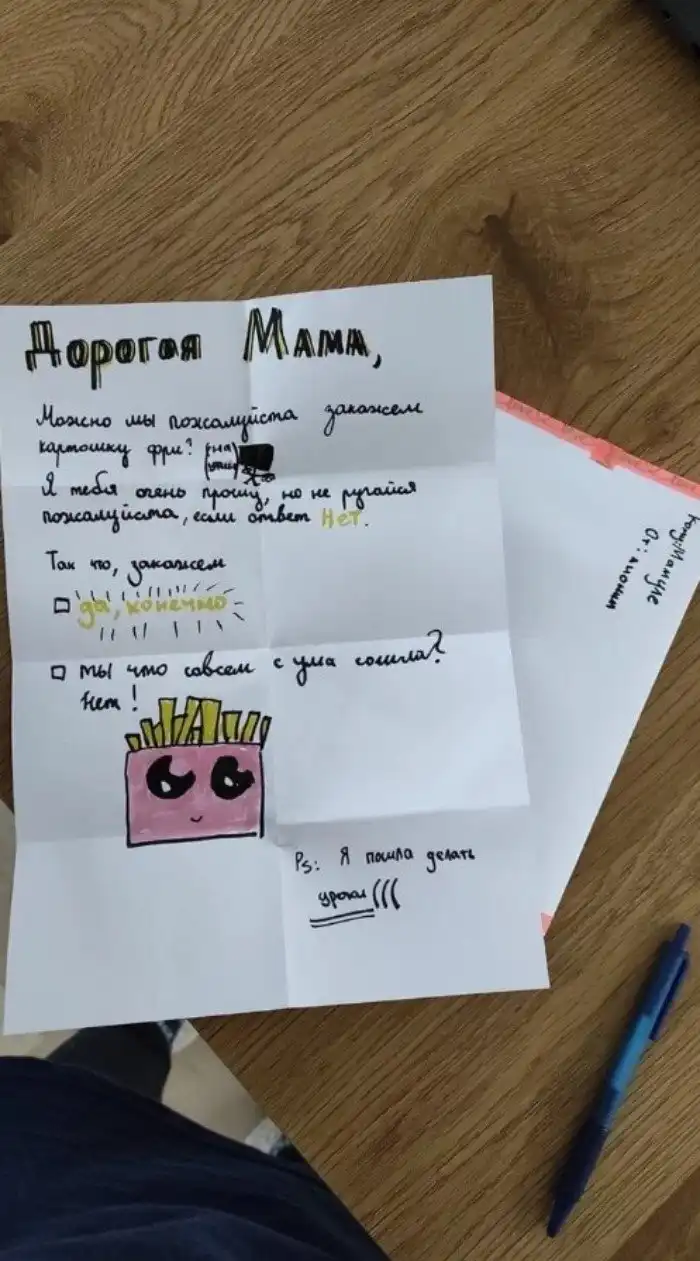 Дорогая Мама,
Можно мы пожалуйста закажем
картошку фри?
Я тебя очень прошу, но не ругайся
пожалуйста, если ответ Нет.
Так что, закажем
да, конечно
мы что совсем с ума сошла?
Нет!
Ps: Я пошла делать
уроки(((
Кому: Мамуле
От: аноним